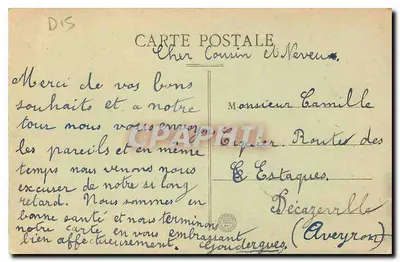 D15
CARTE POSTALE
Cher Cousin et Neveux.
Merci de vos bons
souhaits et a notre
tour nous vous envoyo
les pareils et en même
temps nous venons nous
excuser de notre si long
retard. Nous sommes en
bonne santé et nous terminon
notre carte en vous embrassant
bien affectueusement. Goudergues.
Monsieur Camille
Cignier. Route des
Estaques.
Décazeville
(Aveyron)
CPARAMA